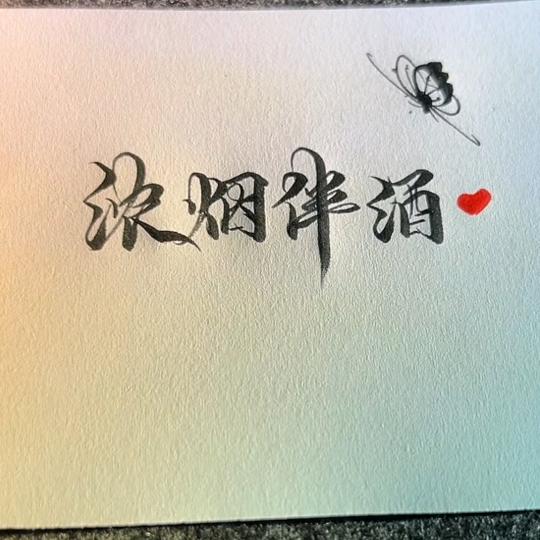 浓烟伴酒